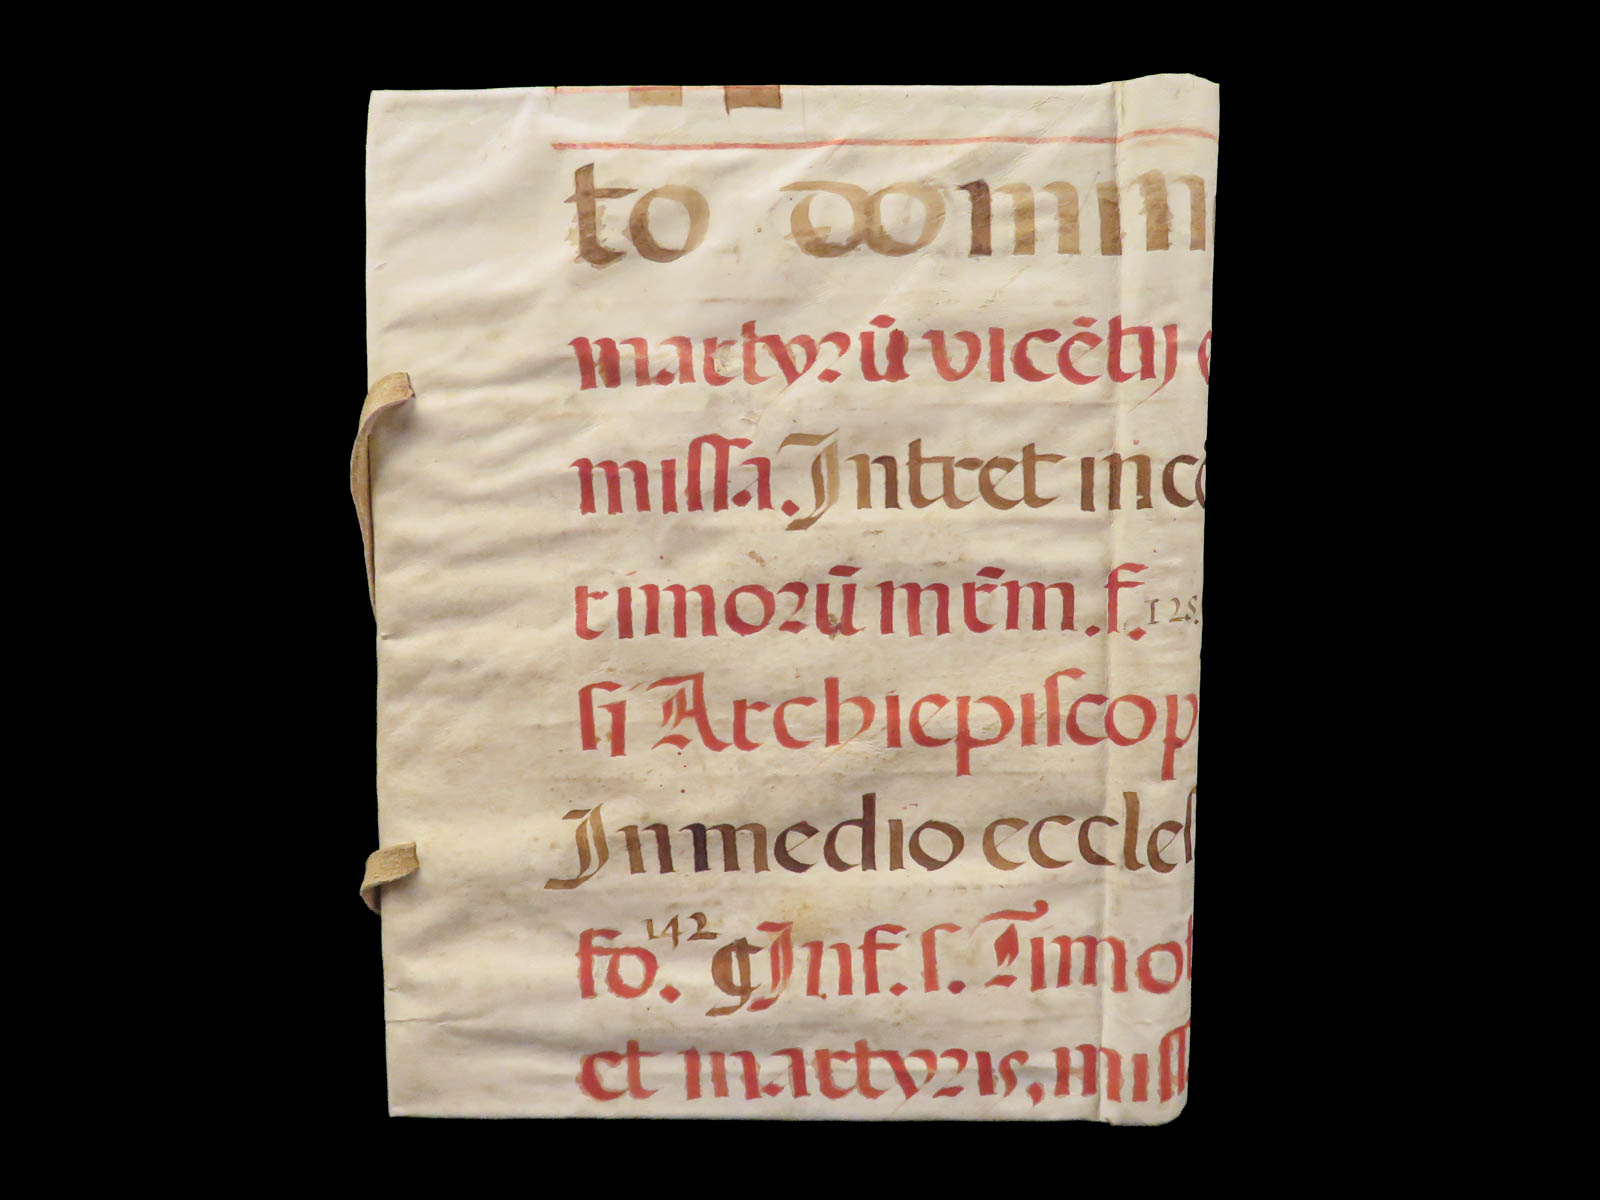 to domin
martyrū vicētij
missa. Intret in cō
timorū mr̄m. f. 128.
si Archiepiscop
In medio eccles
fo. 142 ¶ In f. s. Timot
et martyris, miss